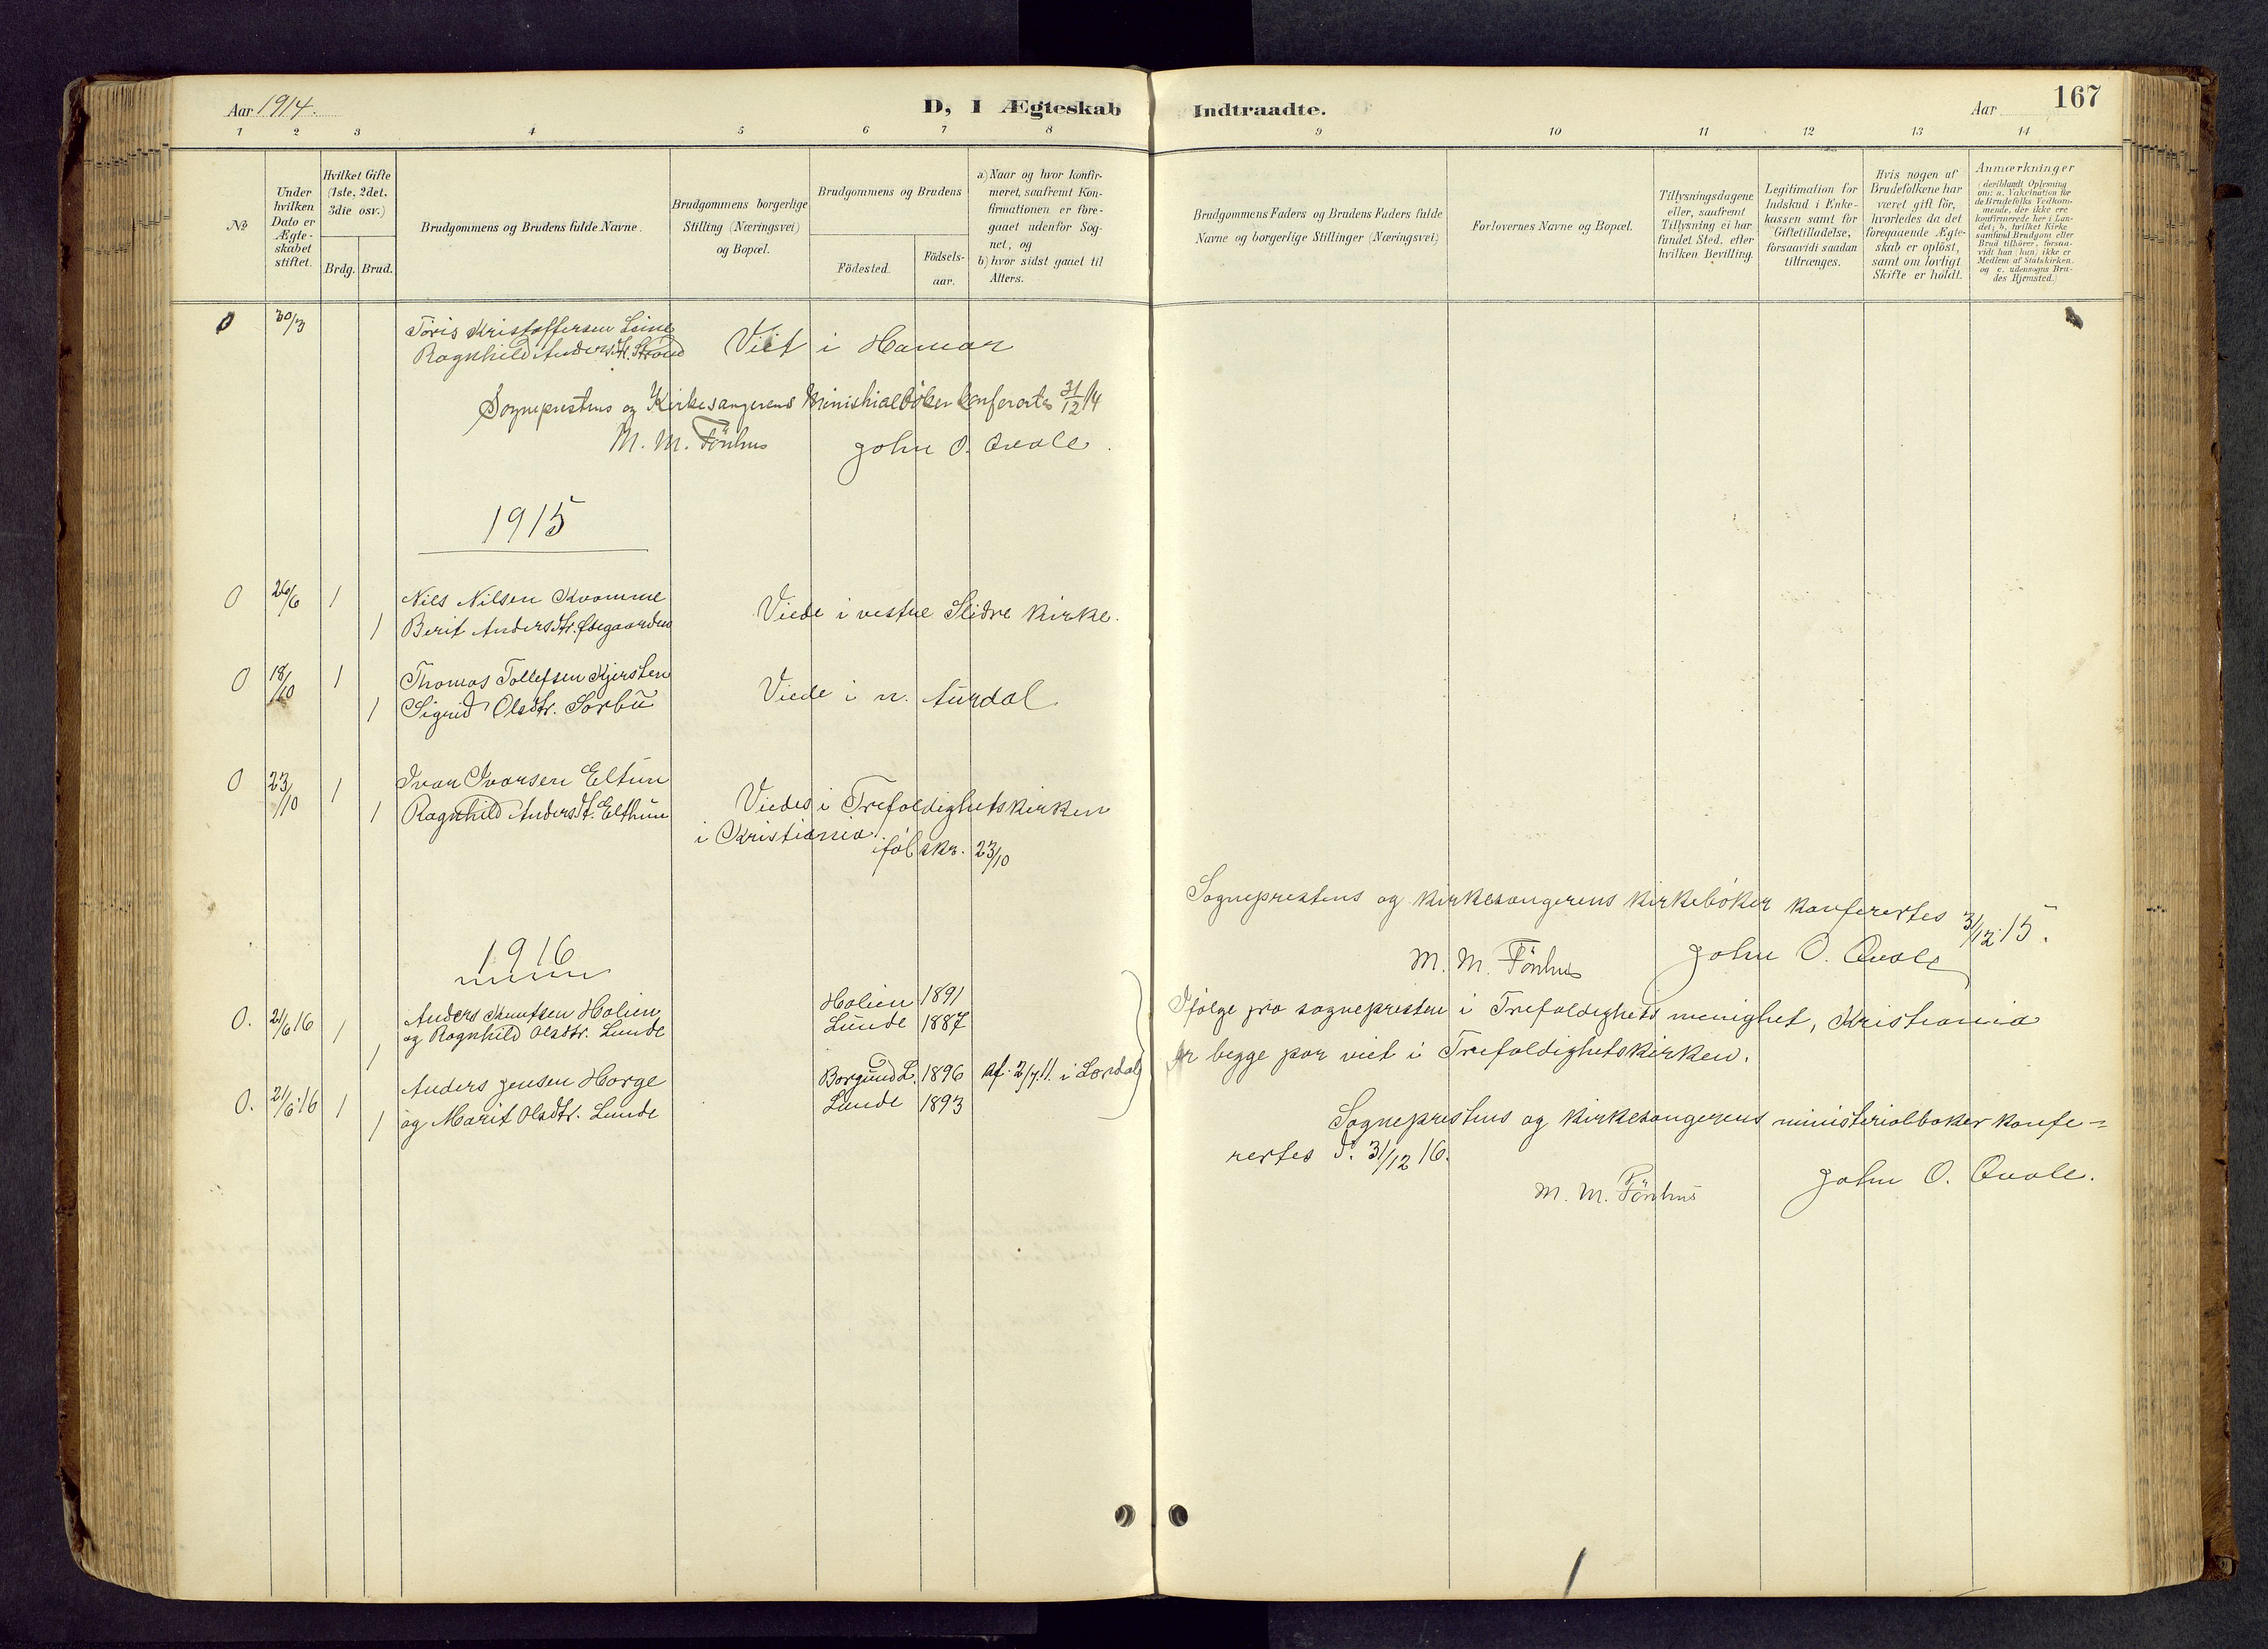 Aar 1914.
D, I Ægteskab
Indtraadte.
Aar
167
1 2 3 4 5 6 7 8 9 10 11 12 13 14
No
Under hvilken Dato er Ægte-skabet stiftet.
Hvilket Gifte (1ste, 2det, 3die osv.)
Brdg. Brud.
Brudgommens og Brudens fulde Navne.
Brudgommens borgerlige Stilling (Næringsvei) og Bopæl.
Brudgommens og Brudens
Födested.
Födsels-aar.
a) Naar og hvor konfir-meret, saafremt Kon-firmationen er fore-gaaet udenfor Sog-net, og
b) hvor sidst gaaet til Alters.
Brudgommens Faders og Brudens Faders fulde Navne og borgerlige Stillinger (Næringsvei)
Forlovernes Navne og Bopæl.
Tillysningsdagene eller, saafremt Tillysning ei har fundet Sted, efter hvilken Bevilling.
Legitimation for Indskud i Enke-kassen samt for Giftetilladelse, forsaavidt saadan tiltrænges.
Hvis nogen af Brudefolkene har været gift før, hvorledes da det foregaaende Ægte-skab er oplöst, samt om lovligt Skifte er holdt.
Anmærkninger (deriblandt Oplysning om: a. Vakcination for de Brudefolks Vedkom-mende, der ikke ere konfirmerede her i Lan-det; b. hvilket Kirke samfund Brudgom eller Brud tilhører, forsaa-vidt han (hun) ikke er Medlem af Statskirken. og c. udensogns Bru-des Hjemsted.)
0 30/3 Kristoffersen
Ragnhild Andersdtr. Strand Viet i Hamar
Sogneprestens og Kirkesangerens Ministrialbøker konferertes 31/12 14
M. M. Fönhus John O. Qvale.
1915
0 26/6 1 Nils Nilsen Kvamme
1 Berit Andersdtr. Øbegaarden Viede i vestre Slidre Kirke.
0 18/10 1 Thomas Tollefsen Kjersten
1 Sigrid Olsdtr. Sørbu Viede i n. Aurdal
0 23/10 1 Ivar Ivarsen Eltun
1 Ragnhild Andersdt. Elthun Viedes i Trefoldighetskirken
i Kristiania iføl skr. 23/10
Sogneprestens og kirkesangerens kirkebøker konferertes 31/12 15.
M. M. Fönhus John O. Qvale
1916
0. 21/6 16 1 Anders Knutsen Holien Holien 1891
1 og Ragnhild Olsdtr. Lunde Lunde 1887
Ifølge fra sognepresten i Trefoldighets menighet, Kristiania
er begge par viet i Trefoldighetskirken.
0. 21/6 16 1 Anders Jensen Horge Borgund L. 1896 af. 2/7.11. i Lærdal
1 og Marit Olsdtr. Lunde Lunde 1893
Sogneprestens og kirkesangerens ministerialbøker konfe-
rertes d. 31/12 16.
M. M. Fönhus John O. Qvale.